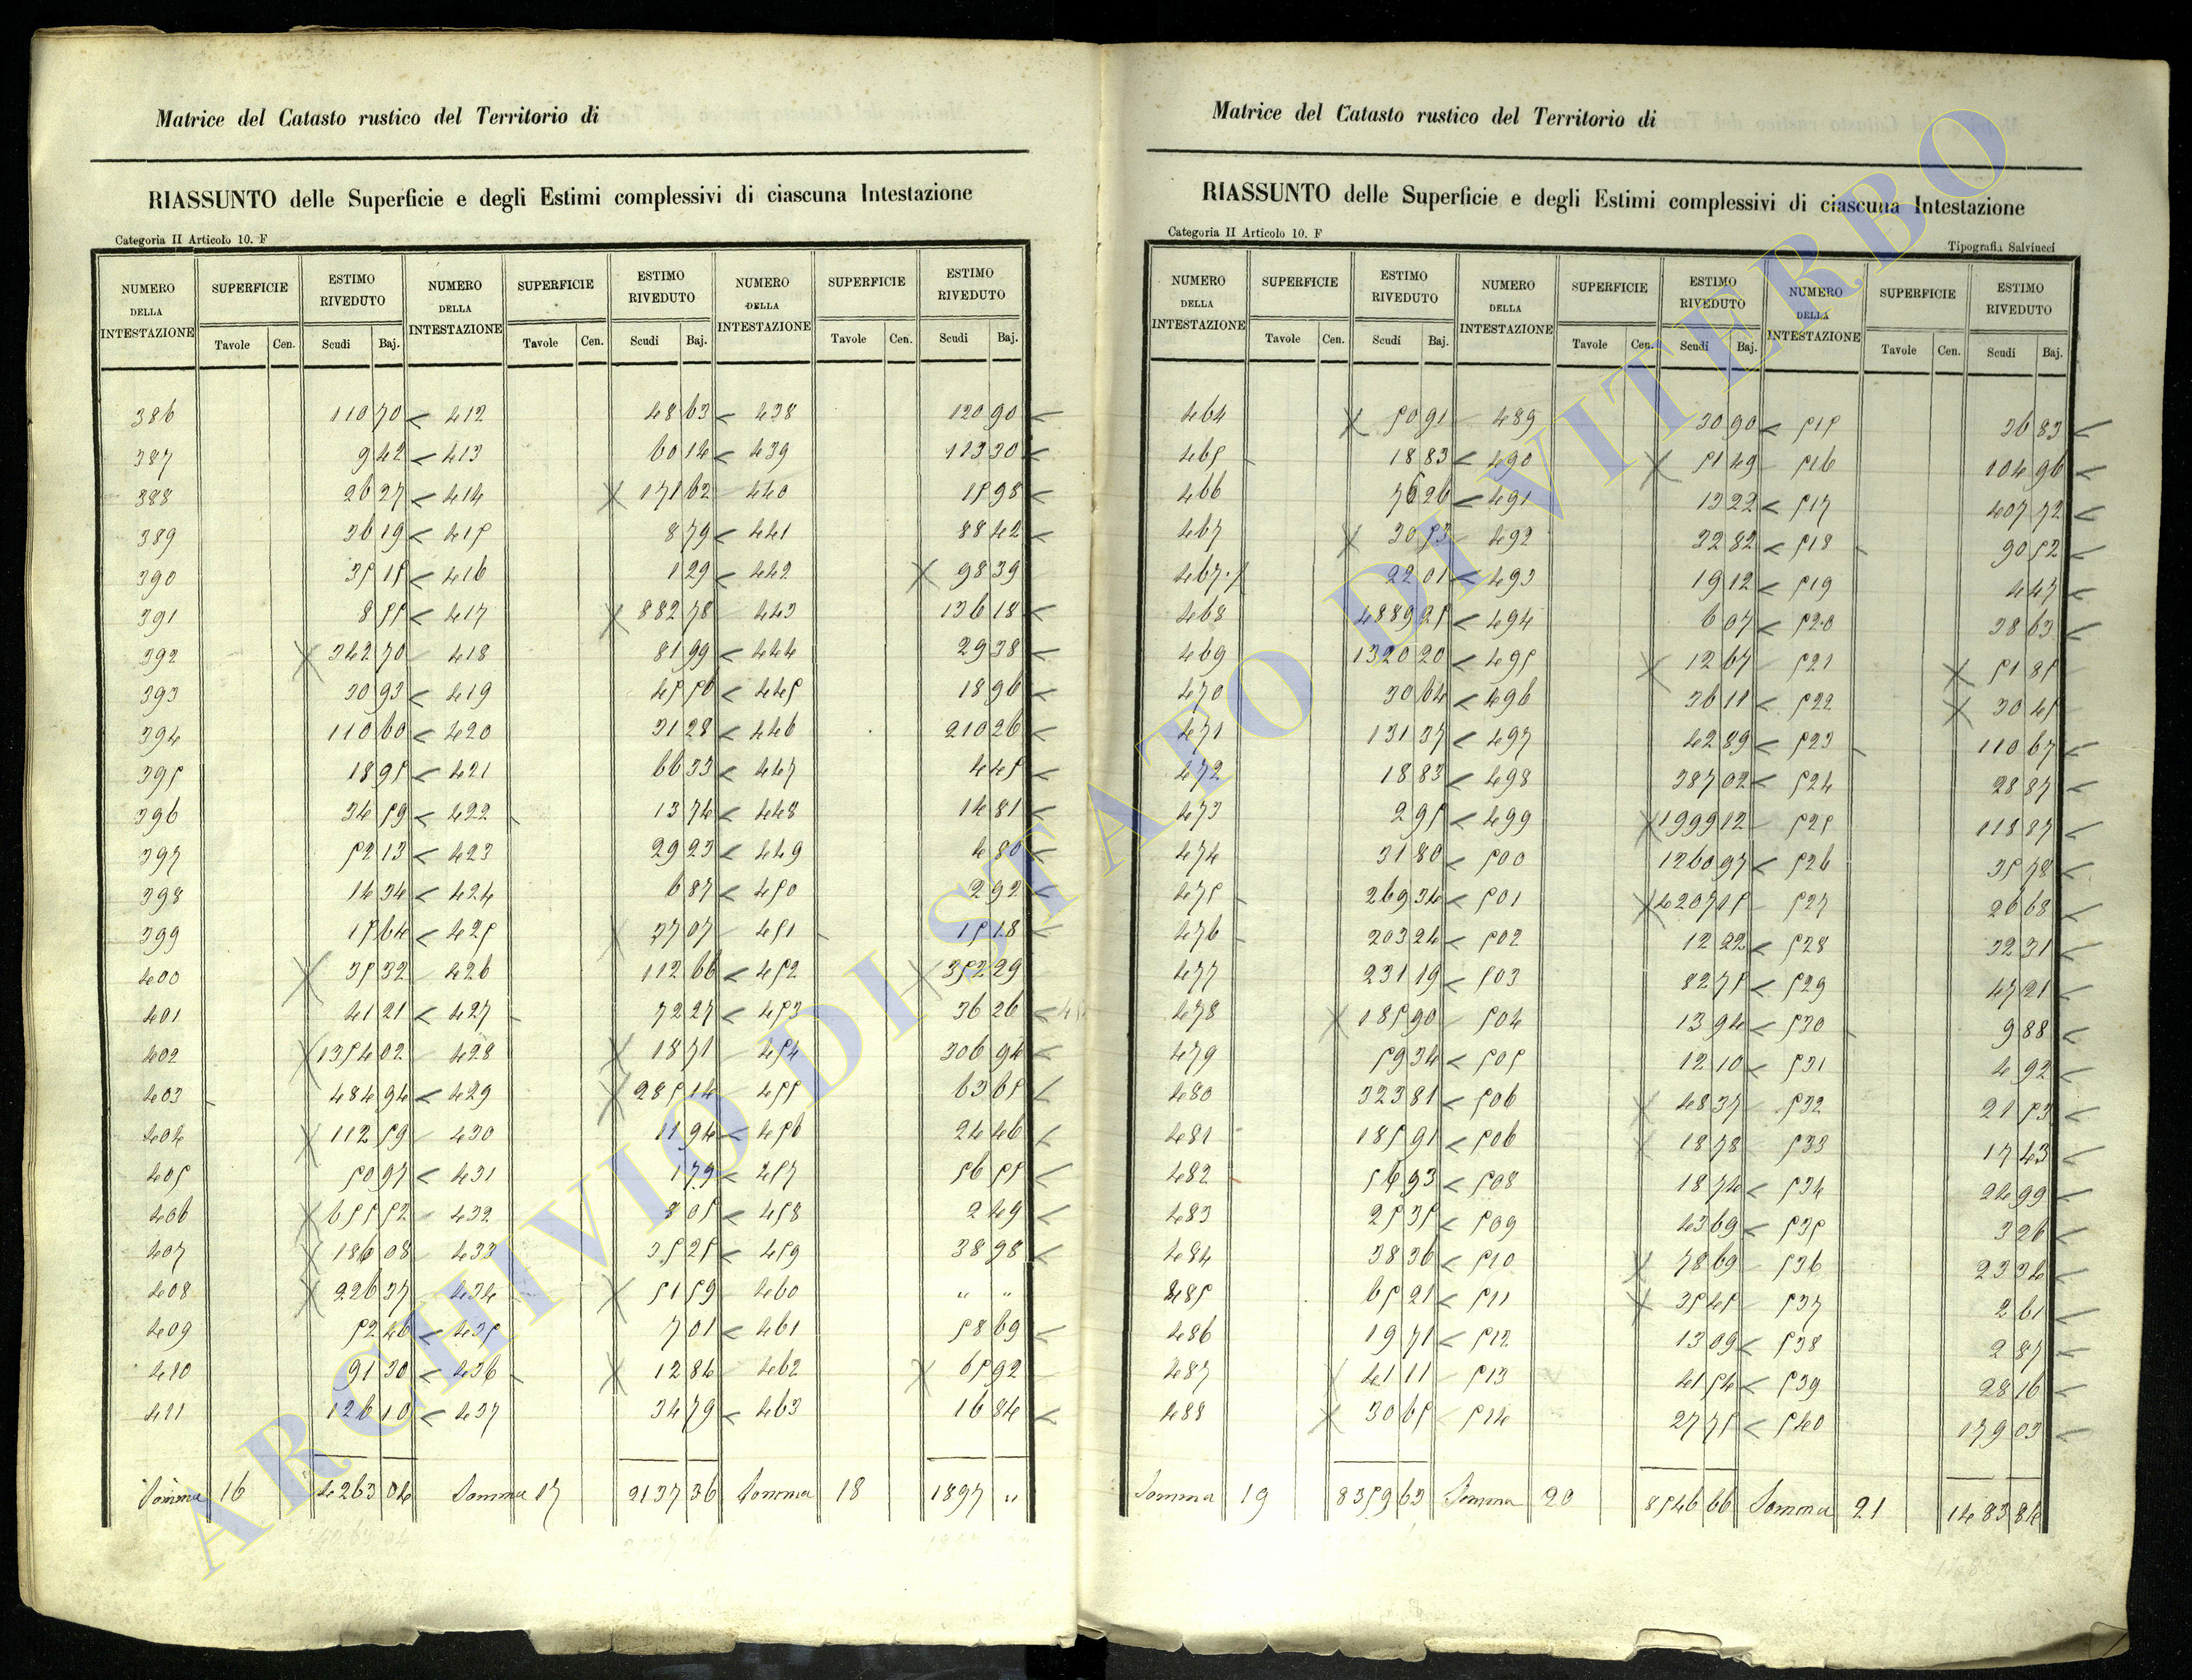 Matrice del Catasto rustico del Territorio di
RIASSUNTO delle Superficie e degli Estimi complessivi di ciascuna Intestazione
Categoria II Articolo 10. F
NUMERO DELLA INTESTAZIONE SUPERFICIE ESTIMO RIVEDUTO NUMERO DELLA INTESTAZIONE SUPERFICIE ESTIMO RIVEDUTO NUMERO DELLA INTESTAZIONE SUPERFICIE ESTIMO RIVEDUTO
Tavole Cen. Scudi Baj. Tavole Cen. Scudi Baj. Tavole Cen. Scudi Baj.
386 110 70 412 48 63 438 120 90
387 9 42 413 60 14 439 113 30
388 26 27 414 171 62 440 15 98
389 36 19 415 8 79 441 88 42
390 35 15 416 1 29 442 98 39
391 8 55 417 882 78 443 136 18
392 342 70 418 81 99 444 29 38
393 30 93 419 45 50 445 18 96
394 110 60 420 31 28 446 210 26
395 18 95 421 66 33 447 4 45
396 34 59 422 13 74 448 14 81
397 52 13 423 29 23 449 4 80
398 14 34 424 6 87 450 2 92
399 15 64 425 37 07 451 15 18
400 35 32 426 112 66 452 352 29
401 41 21 427 72 27 453 36 26
402 1354 02 428 18 71 454 306 94
403 484 94 429 285 14 455 63 65
404 112 59 430 11 94 456 24 46
405 50 97 431 1 79 457 56 55
406 655 52 432 8 05 458 2 49
407 186 08 433 35 25 459 38 98
408 226 37 434 51 59 460 " "
409 52 46 435 7 01 461 58 69
410 91 30 436 12 84 462 65 92
411 126 10 437 34 79 463 16 84
Somma 16 4263 04 Somma 17 2137 36 Somma 18 1897 "
Matrice del Catasto rustico del Territorio di
RIASSUNTO delle Superficie e degli Estimi complessivi di ciascuna Intestazione
Categoria II Articolo 10. F
Tipografia Salviucci
NUMERO DELLA INTESTAZIONE SUPERFICIE ESTIMO RIVEDUTO NUMERO DELLA INTESTAZIONE SUPERFICIE ESTIMO RIVEDUTO NUMERO DELLA INTESTAZIONE SUPERFICIE ESTIMO RIVEDUTO
Tavole Cen. Scudi Baj. Tavole Cen. Scudi Baj. Tavole Cen. Scudi Baj.
464 50 91 489 30 90 515 36 83
465 18 83 490 51 49 516 104 96
466 76 26 491 13 22 517 407 72
467 30 53 492 32 82 518 90 52
467.1 22 01 493 19 12 519 4 47
468 4889 25 494 6 07 520 38 63
469 1320 20 495 12 67 521 51 85
470 30 64 496 36 11 522 30 45
471 131 37 497 42 89 523 110 67
472 18 83 498 387 02 524 28 87
473 2 95 499 1999 12 525 118 87
474 31 80 500 1260 97 526 35 78
475 269 34 501 4207 15 527 26 68
476 203 24 502 12 22 528 32 31
477 231 19 503 82 75 529 47 21
478 185 90 504 13 94 530 9 88
479 59 34 505 12 10 531 4 92
480 323 81 506 48 37 532 21 53
481 185 91 506 18 78 533 17 43
482 56 93 508 18 74 534 24 99
483 25 35 509 43 69 535 3 26
484 38 36 510 78 69 536 23 34
485 65 21 511 35 45 537 2 61
486 19 71 512 13 09 538 2 87
487 41 11 513 41 54 539 28 16
488 30 65 514 27 75 540 179 03
Somma 19 8359 63 Somma 20 8546 66 Somma 21 1483 84
ARCHIVIO DI STATO DI VITERBO